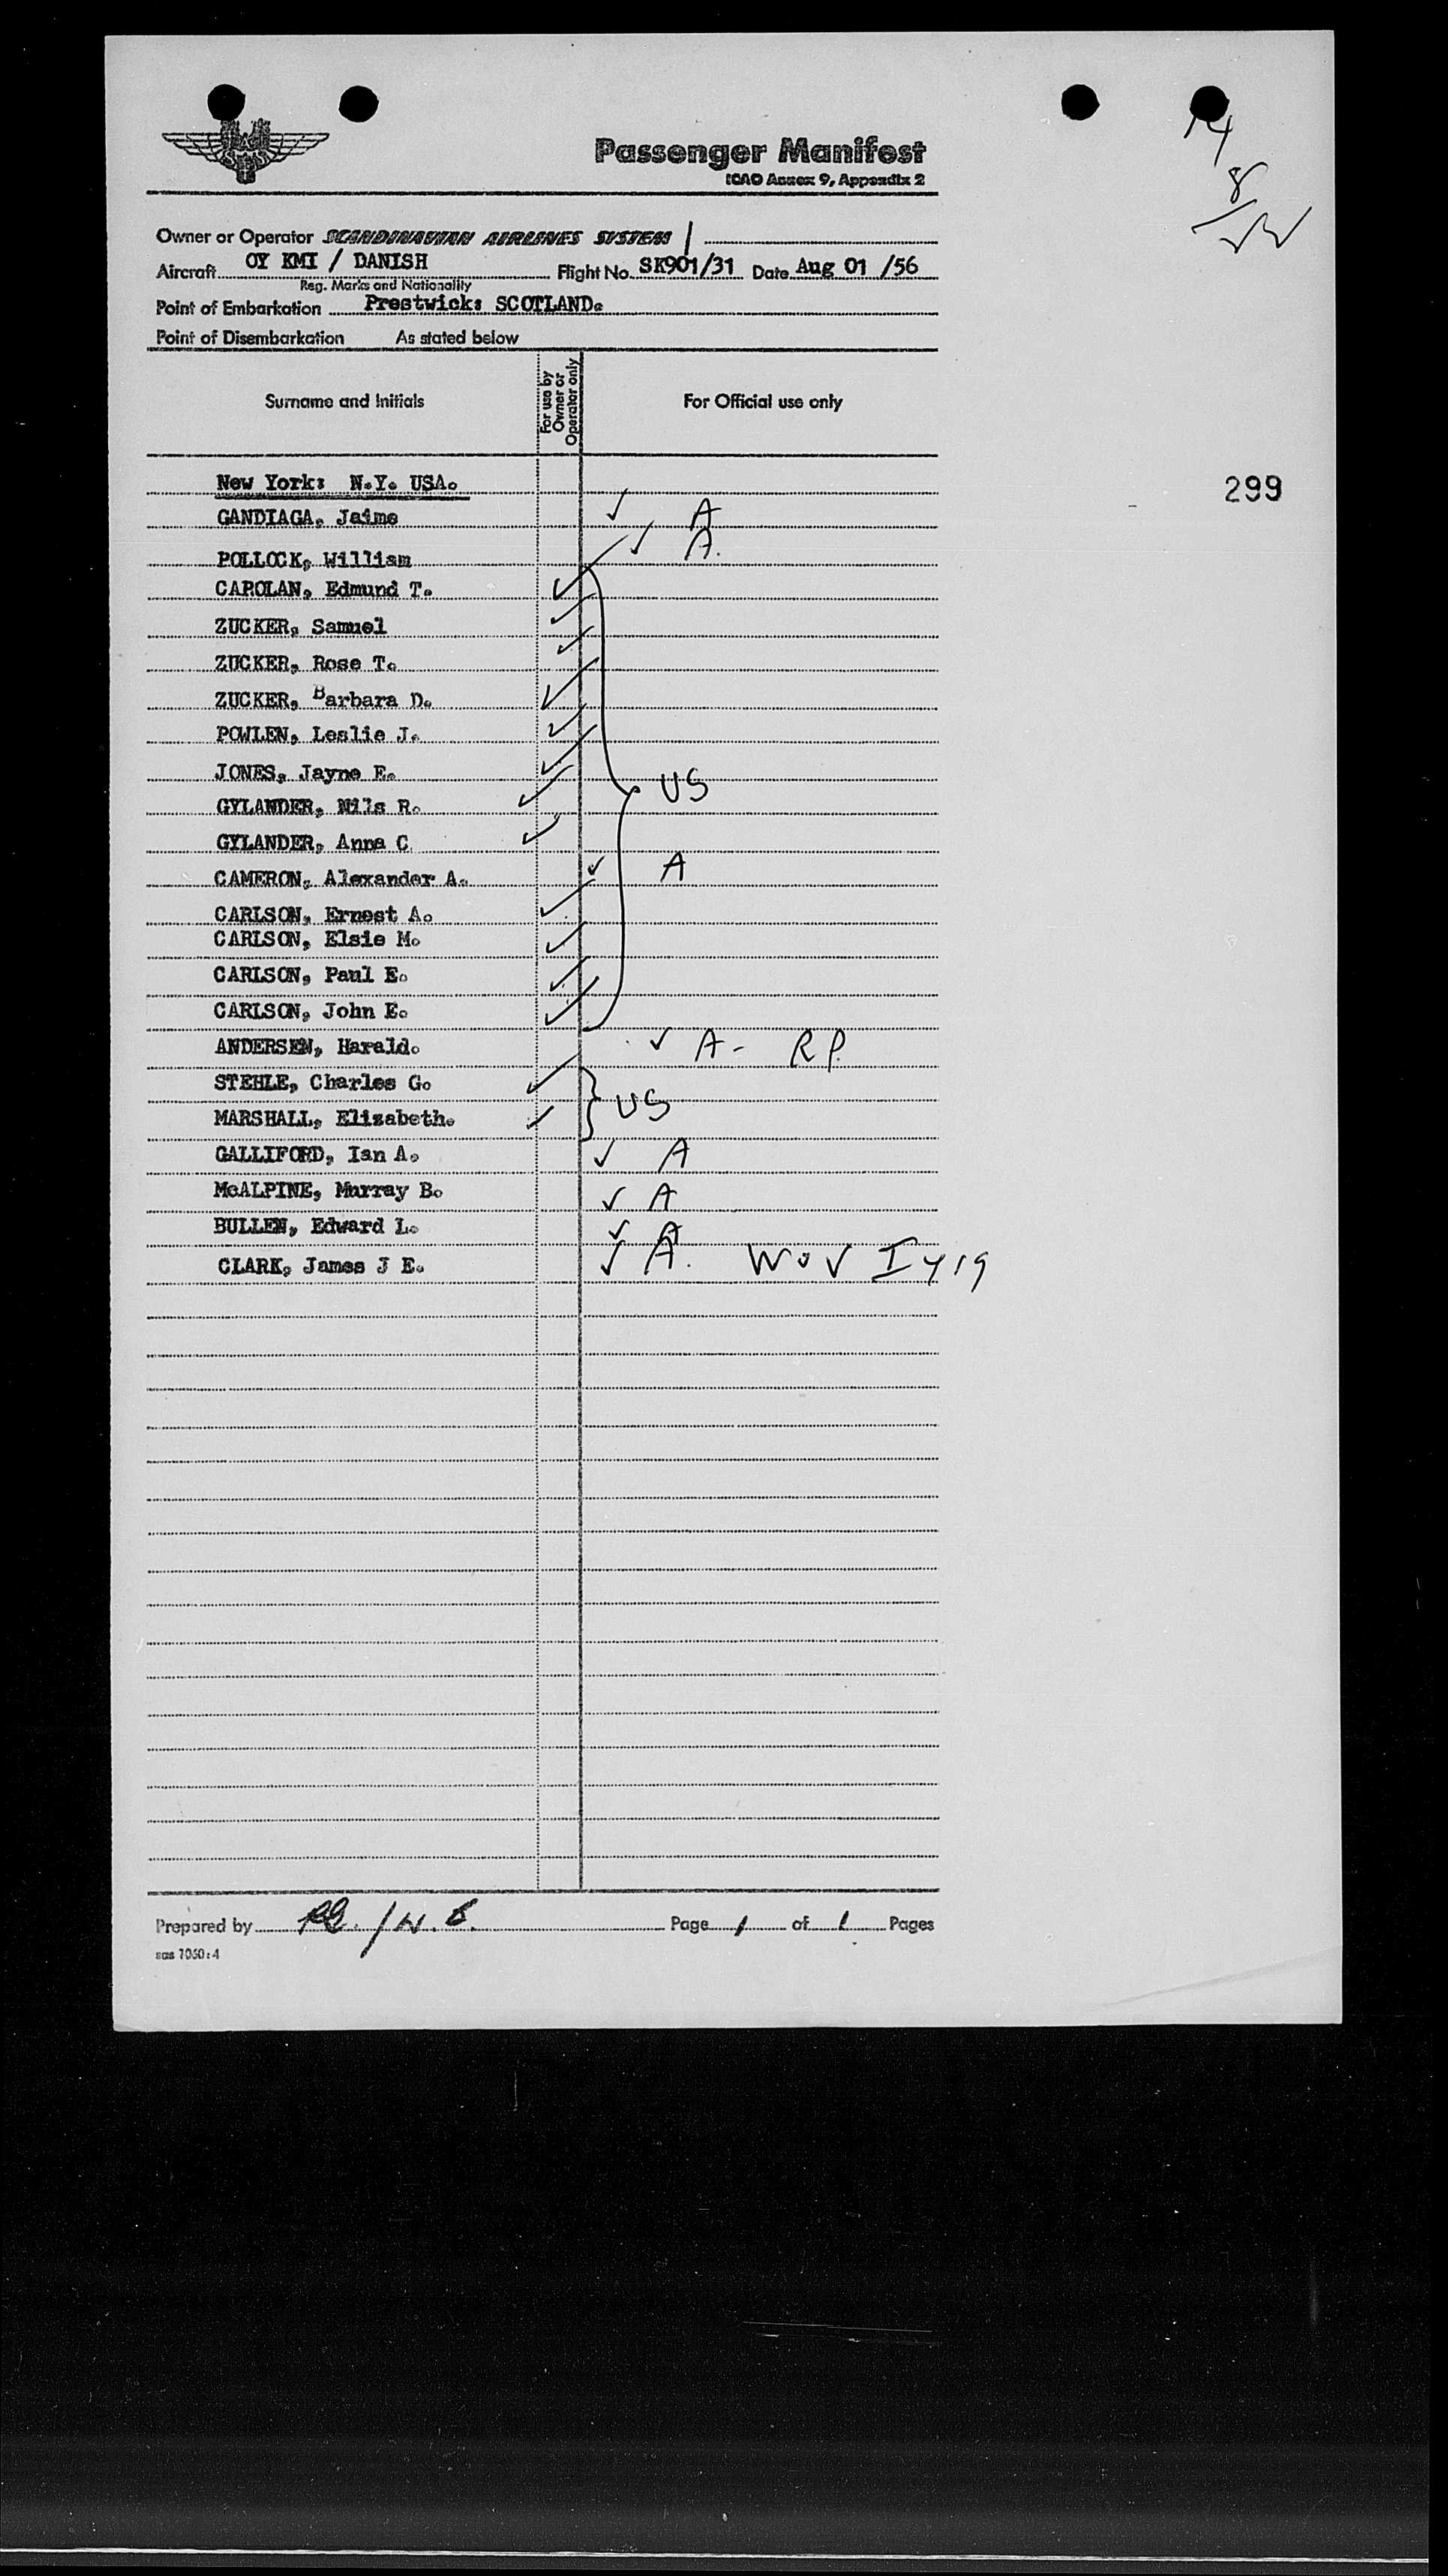 14
8
Passenger Manifest
ICAO Annex 9, Appendix 2
Owner or Operator SCANDINAVIAN AIRLINES SYSTEM
Aircraft OY KMI / DANISH Flight No. SK901/31 Date Aug 01 /56
Reg. Marks and Nationality
Point of Embarkation Prestwick: SCOTLAND.
Point of Disembarkation As stated below
Surname and Initials For use by Owner or Operator only For Official use only
New York: N.Y. USA.
299
GANDIAGA, Jaime ✓ A
POLLOCK, William ✓ A.
CAROLAN, Edmund T. ✓
ZUCKER, Samuel ✓
ZUCKER, Rose T. ✓
ZUCKER, Barbara D. ✓
POWLEN, Leslie J. ✓
JONES, Jayne E. ✓ US
GYLANDER, Nils R. ✓
GYLANDER, Anna C ✓
CAMERON, Alexander A. ✓ A
CARLSON, Ernest A. ✓
CARLSON, Elsie M. ✓
CARLSON, Paul E. ✓
CARLSON, John E. ✓
ANDERSEN, Harald. ✓ A - R P.
STEHLE, Charles G. ✓
MARSHALL, Elizabeth. ✓ US
GALLIFORD, Ian A. ✓ A
McALPINE, Murray B. ✓ A
BULLEN, Edward L. ✓ A
CLARK, James J E. ✓ A.
Prepared by
Page 1 of 1 Pages
sas 7050:4